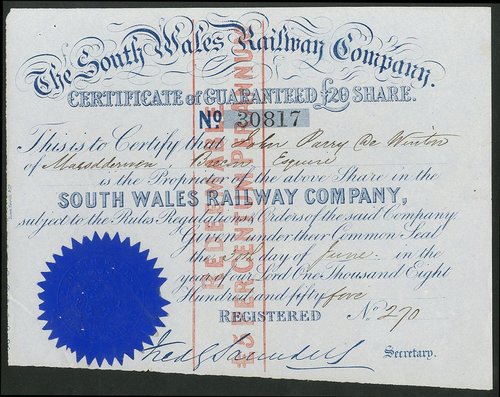 The South Wales Railway Company.
CERTIFICATE of GUARANTEED £20 SHARE.
No 30817
This is to Certify that John Parry De Winton
of Maesdderwen, Brecon Esquire
is the Proprietor of the above Share in the
SOUTH WALES RAILWAY COMPANY,
subject to the Rules Regulations & Orders of the said Company
Given under their Common Seal
the day of June in the
year of our Lord One Thousand Eight
Hundred and fifty five
REGISTERED No 270
Fred G Saunders Secretary.
REDEEMABLE
PER CENT PER ANNUM